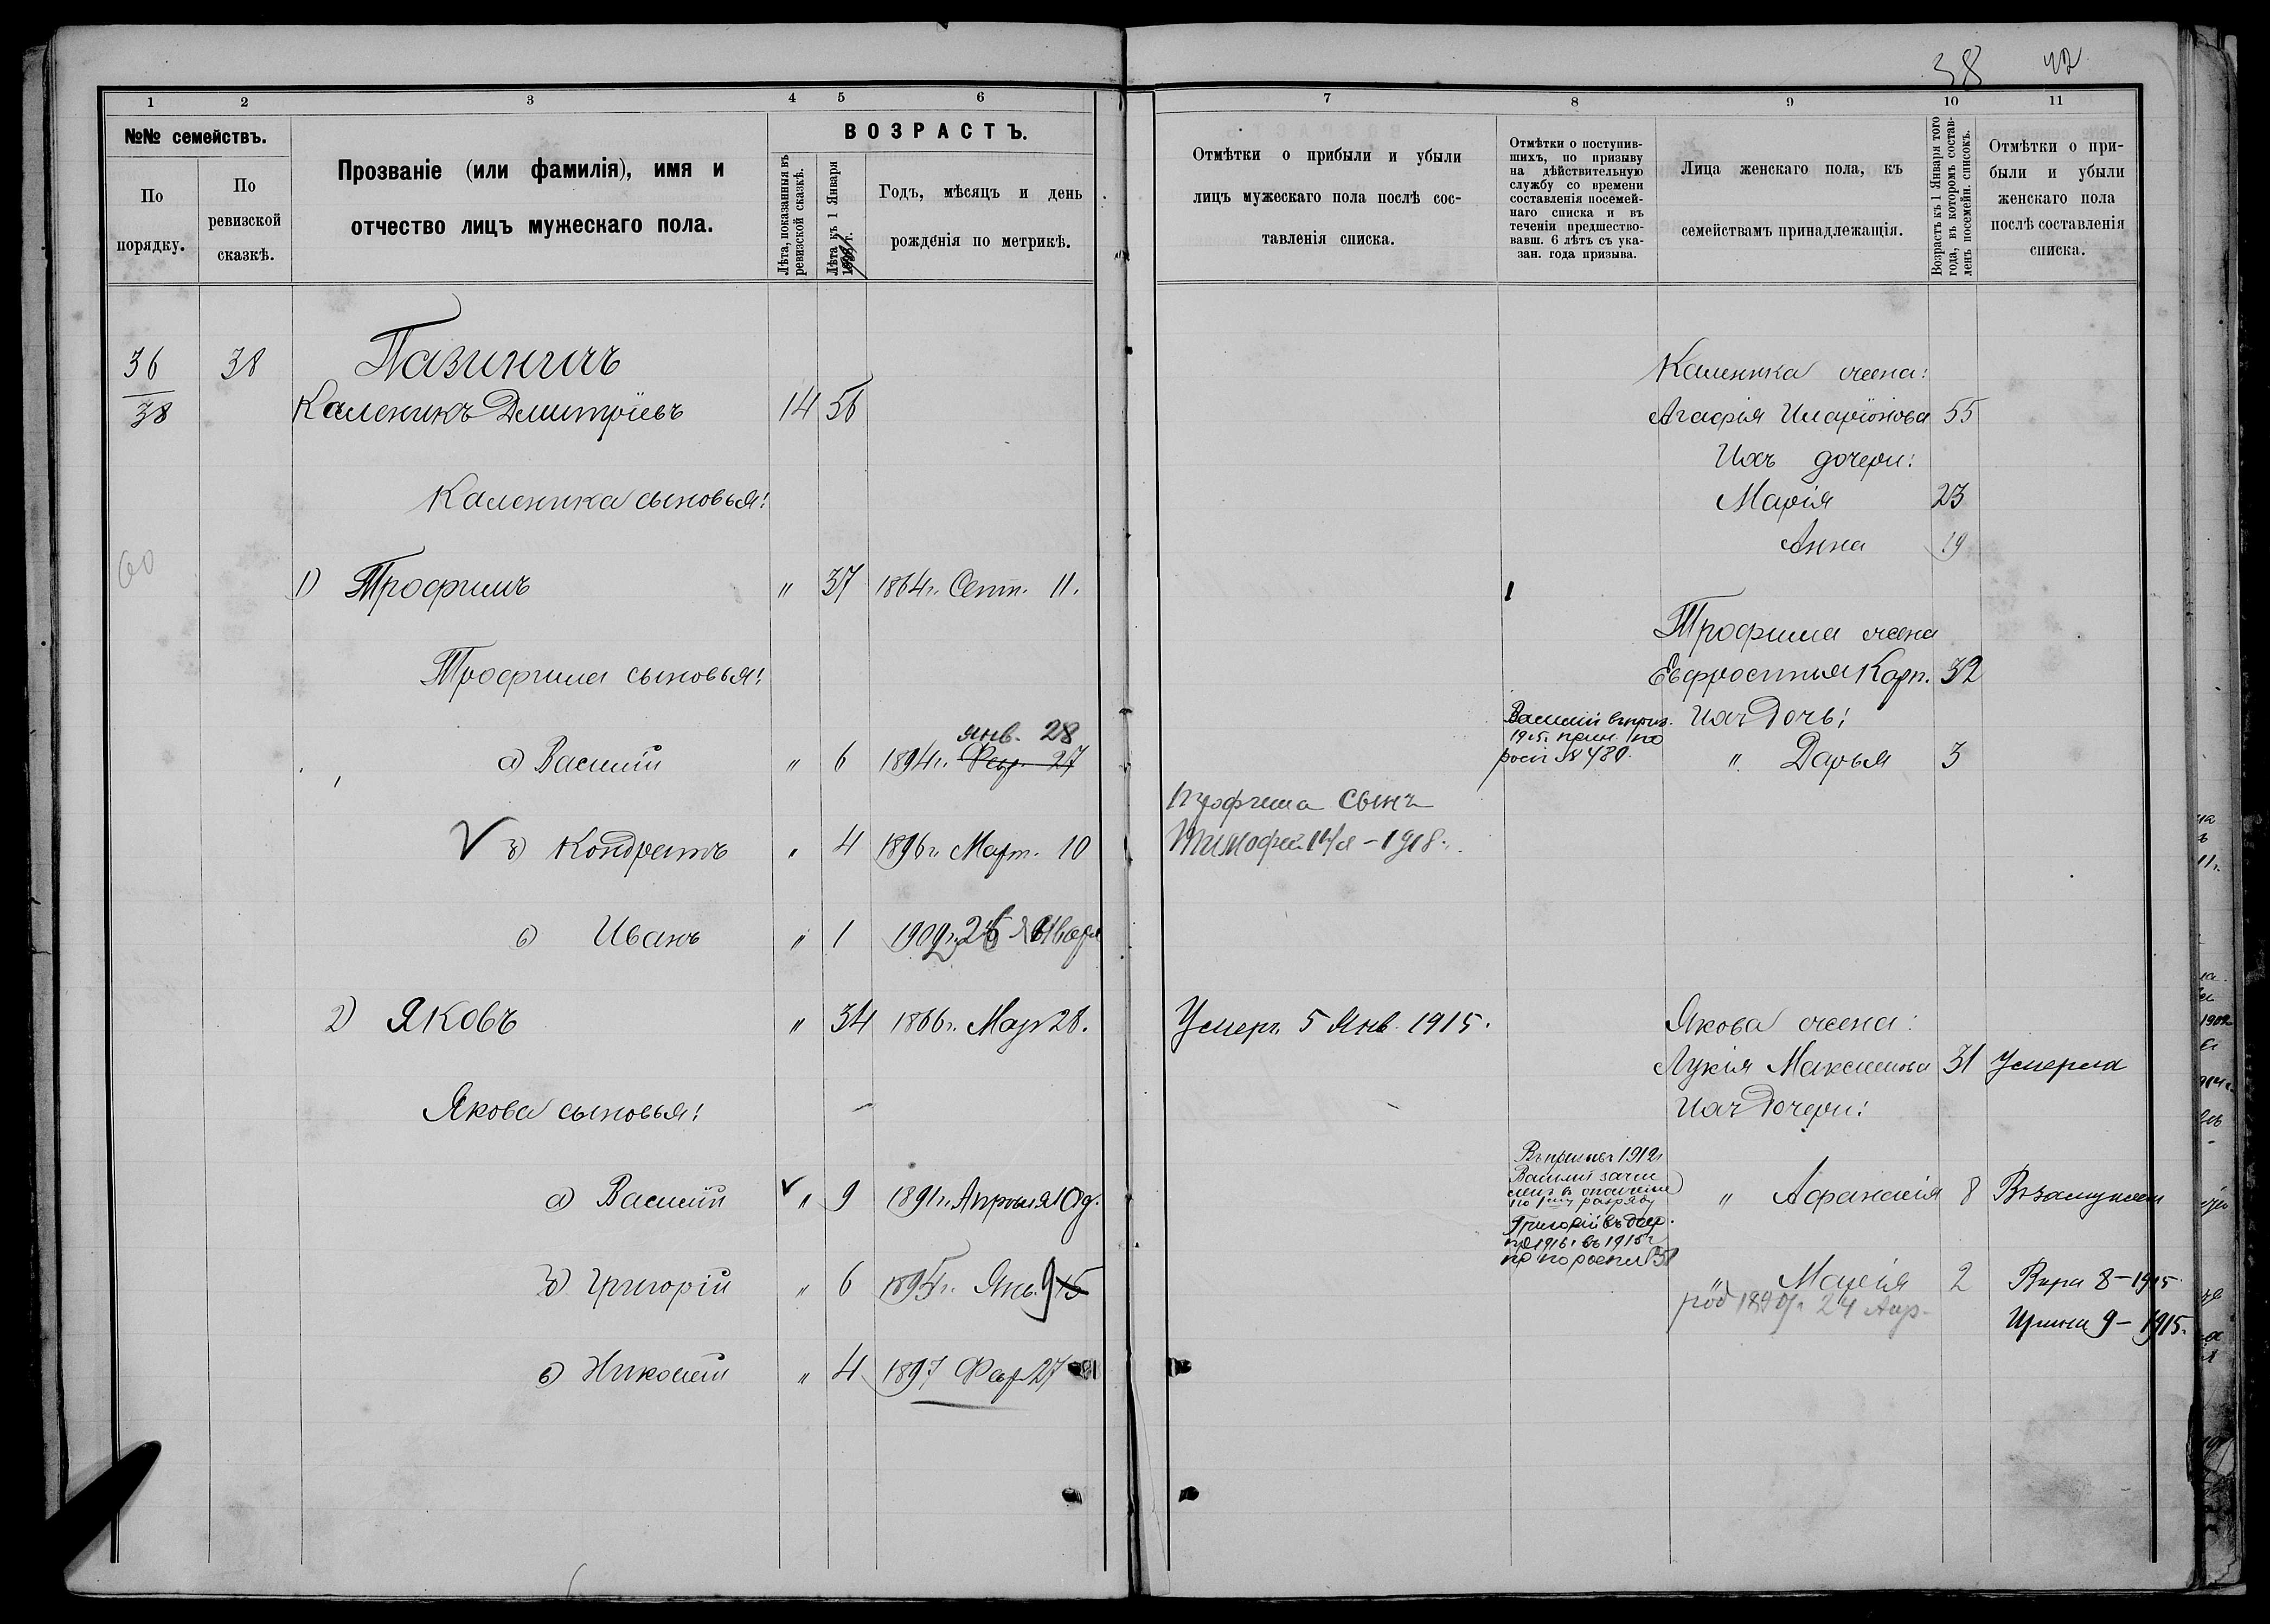 38 42
1 2 3 4 5 6
№№ семействъ.
По порядку.
По ревизской сказкѣ.
Прозваніе (или фамилія), имя и
отчество лицъ мужескаго пола.
ВОЗРАСТЪ.
Лѣта, показанныя въ ревизской сказкѣ.
Лѣта къ 1 Января
Годъ, мѣсяцъ и день
рожденія по метрикѣ.
36 38
38
Каленикъ Дмитріевъ 14 56
Каленика сыновья:
60
1) Трофимъ " 37 1864г. Сент. 11.
Трофима сыновья:
янв. 28
а) Василій " 6 1894г. Февр. 27
б) Кондратъ " 4 1896г. Март. 10
в) Иванъ " 1
2) Яковъ " 34 1866г. Мар 28.
Якова сыновья:
а) Василій " 9 1891г. Апрѣля 10 д.
б) Григорій " 6 1895г. Янв. 9 15
в) Николай " 4 1897 Фев 27
7 8 9 10 11
Отмѣтки о прибыли и убыли
лицъ мужескаго пола послѣ сос-
тавленія списка.
Отмѣтки о поступив-
шихъ, по призыву
на дѣйствительную
службу со времени
составленія посемей-
наго списка и въ
теченіи предшество-
вавш. 6 лѣтъ съ ука-
зан. года призыва.
Лица женскаго пола, къ
семействамъ принадлежащія.
Возрастъ къ 1 Января того
года, въ которомъ состав-
ленъ посемейн. списокъ.
Отмѣтки о при-
были и убыли
женскаго пола
послѣ составленія
списка.
Каленика жена:
Агафія Иларіонова 55
Ихъ дочери:
Марія 23
Анна 19
1
Трофима жена
Евфросинія Карп. 32
Ихъ дочь:
" Дарья 3
Василій въ приз.
1915г. прин. по
росп № 480.
Трофима сынъ
Тимофей - 1918г.
Умеръ 5 Янв. 1915.
Якова жена:
Лукія Максимова 31 Умерла
Ихъ дочери:
Въ призывъ 1912г
Василій зачи
сленъ въ ополченіе
по 1му разряду
Григорій въ
1916г въ 1915г
" Афанасія 8 Въ замуж
" Марія 2 Вѣра 8 - 1915
род 24 Апр.
Ирина 9 - 1915.